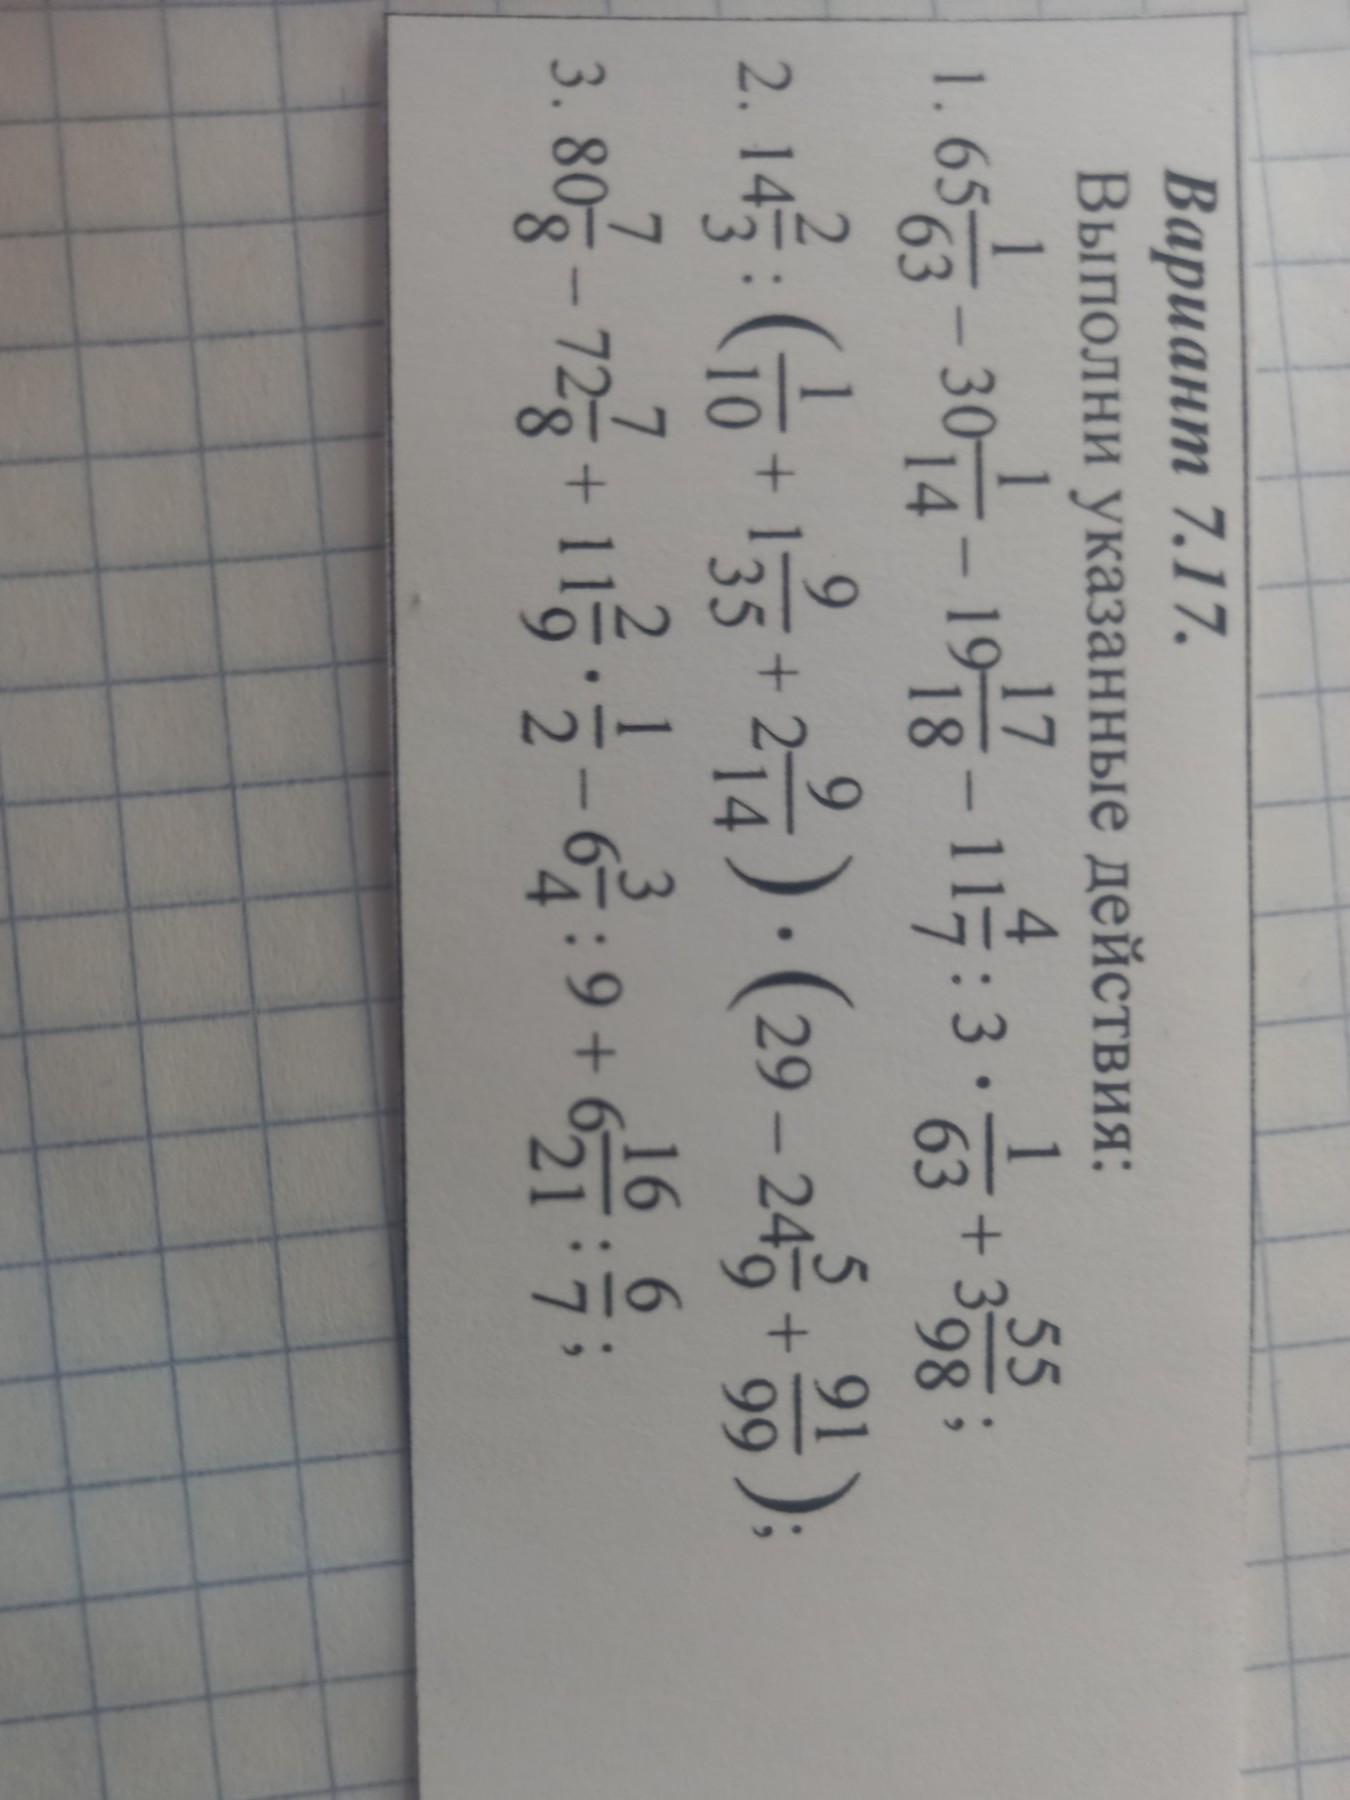 Вариант 7.17.
Выполни указанные действия:
1. 65 1/63 − 30 1/14 − 19 17/18 − 11 4/7 : 3 · 1/63 + 3 55/98;
2. 14 2/3 : (1/10 + 1 9/35 + 2 9/14) · (29 − 24 5/9 + 91/99);
3. 80 7/8 − 72 7/8 + 11 2/9 · 1/2 − 6 3/4 : 9 + 6 16/21 : 6/7;